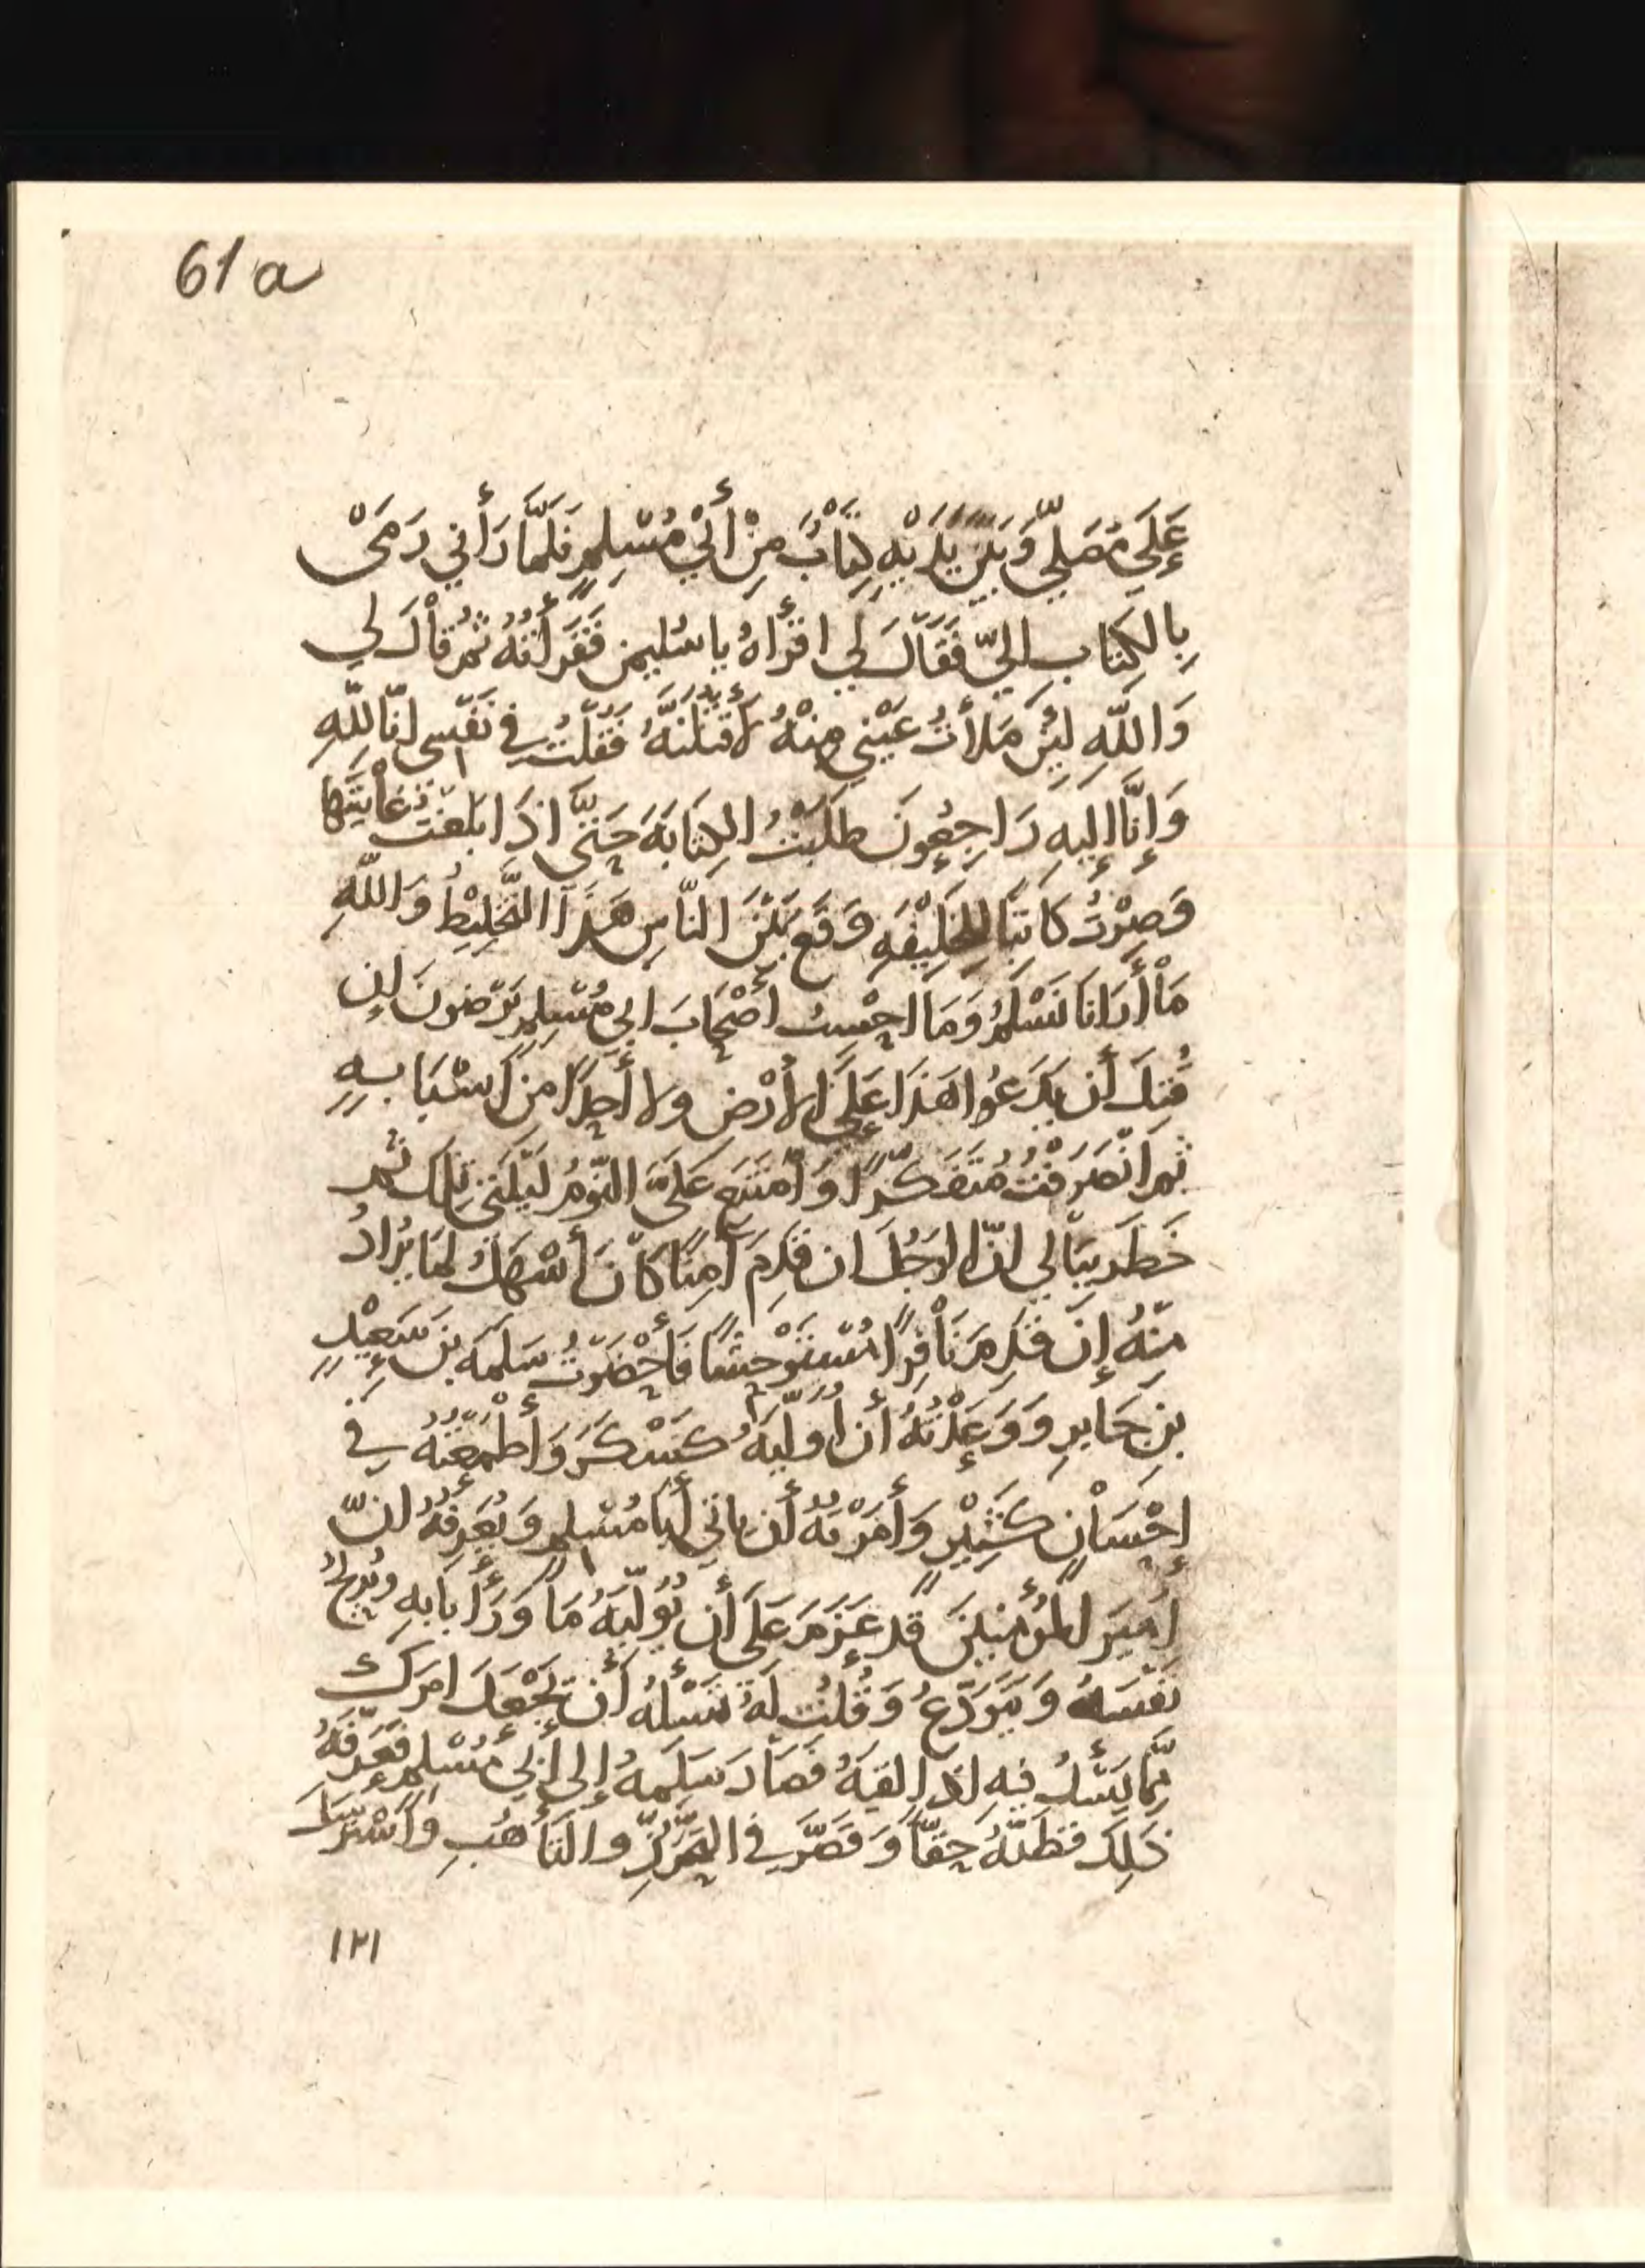 61a
عَلَى مُصَلًّى وَبَيْنَ يَدَيْهِ كِتَابٌ مِنْ أَبِيْ مُسْلِمٍ فَلَمَّا رَأَنِي رَمَىْ
بِالكِتَابِ اليّ فَقَالَ لِي اقْرَأهُ يا سُليمن فَقَرَأْتُهُ ثُمَّ قَاْلَ لِي
وَاللَّهِ لَئِنْ مَلَأتُ عَيْنِي مِنْهُ لَأَقْتُلَنَّهُ فَقُلْتُ فِي نَفْسِى انّا لِلَّهِ
وَإِنَّا إِلَيهِ رَاجِعُونَ طَلَبْتُ الكِتَابَةَ حَتَّىَ اذَا بَلَغْتُ غَاْيَتَهَا
وَصِرْتُ كَاتِبًا لِلخَلِيْفَهِ وَقَع بَيْنَ النَّاسِ هَذَا التَّخْلِيْطُ وَاللَّهِ
مَاْ أَرَانَا نَسْلَمُ وَمَا احْسِبُ أَصْحَابَ ابِي مُسْلِمٍ يَرْضَونَ اِن
قُتِلَ أَن يَدَعُوا هَذَا عَلَى الأَرْضِ ولا أَحِدًا مِن اَسْبَابِهِ
ثُمَّ انْصَرَفْتُ مُتَفَكِّرًا وَامْتَنَعَ عَلَىَّ النَّوْمُ لَيْلَتِي تِلكَ ثُمَّ
خَطَرَ بِبَالي انّ الرَجُلَ ان قَدِمَ آمِنًا كَانَ أَسْهَلُ لمَا يُرَادُ
مِنْهُ إِن قَدِمَ نَاْفِرًا مُسْتَوْحِشًا فَأَحْضَرْتُ سَلَمَه بنَ سَعِيْدٍ
بنِ جَابرِ وَوَعَدْتُهُ أَن أُوَلِّيَهُ كَسْكَرَ وَأَطْمَعْتُهُ فِي
إِحْسَاْنٍ كَثِيْرٍ وَأَمَرْتُهُ أَن يأتي أَبَا مُسْلِمٍ وَيُعَرِفَهُ انّ
اَمِيَر المُؤْمِنِينَ قد عَزَمَ عَلَى أَن يُوَلِّيَهُ مَا وَرَأَ بَابِهِ وَيُرِيحُ
نَفْسَهُ وَيَتَوَدَّعُ وَقُلتُ لَهُ تَسْأَلُهُ أَن يَجْعَلَ امرَكَ
مِمَّا يَسْأَلُ فيه اذا لقيَهُ فَصَاْرَ سَلَمَهُ إِلى أَبِي مُسْلِمٍ فَعَرَّفَهُ
ذَلِكَ فَظَنَّهُ حَقًّا وَقَصَّرَ في التَّحَرُّزِ والتَأَهُّبِ وَاسْتَرْسَلَ
١٢١